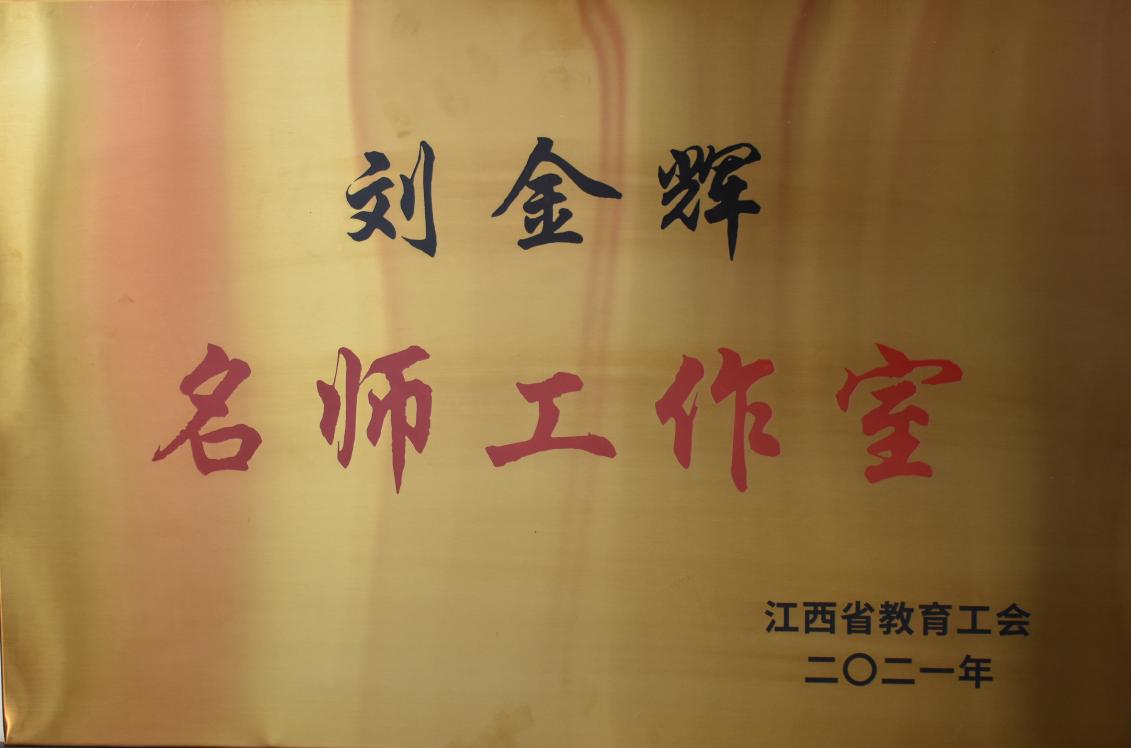 刘金辉
名师工作室
江西省教育工会
二〇二一年